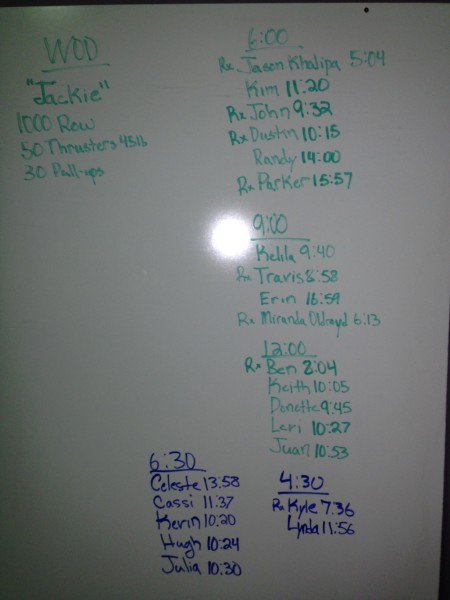 WOD
"Jackie"
1000 Row
50 Thrusters 45lb
30 Pull-ups
6:00
Rx Jason Khalipa 5:04
Kim 11:20
Rx John 9:32
Rx Dustin 10:15
Randy 14:00
Rx Parker 15:57
9:00
Kelila 9:40
Rx Travis 8:58
Erin 16:59
Rx Miranda Oldroyd 6:13
12:00
Rx Ben 8:04
Keith 10:05
Donette 9:45
Leri 10:27
Juan 10:53
6:30
Celeste 13:58
Cassi 11:37
Kerin 10:20
Hugh 10:24
Julia 10:30
4:30
Rx Kyle 7:36
Lynda 11:56